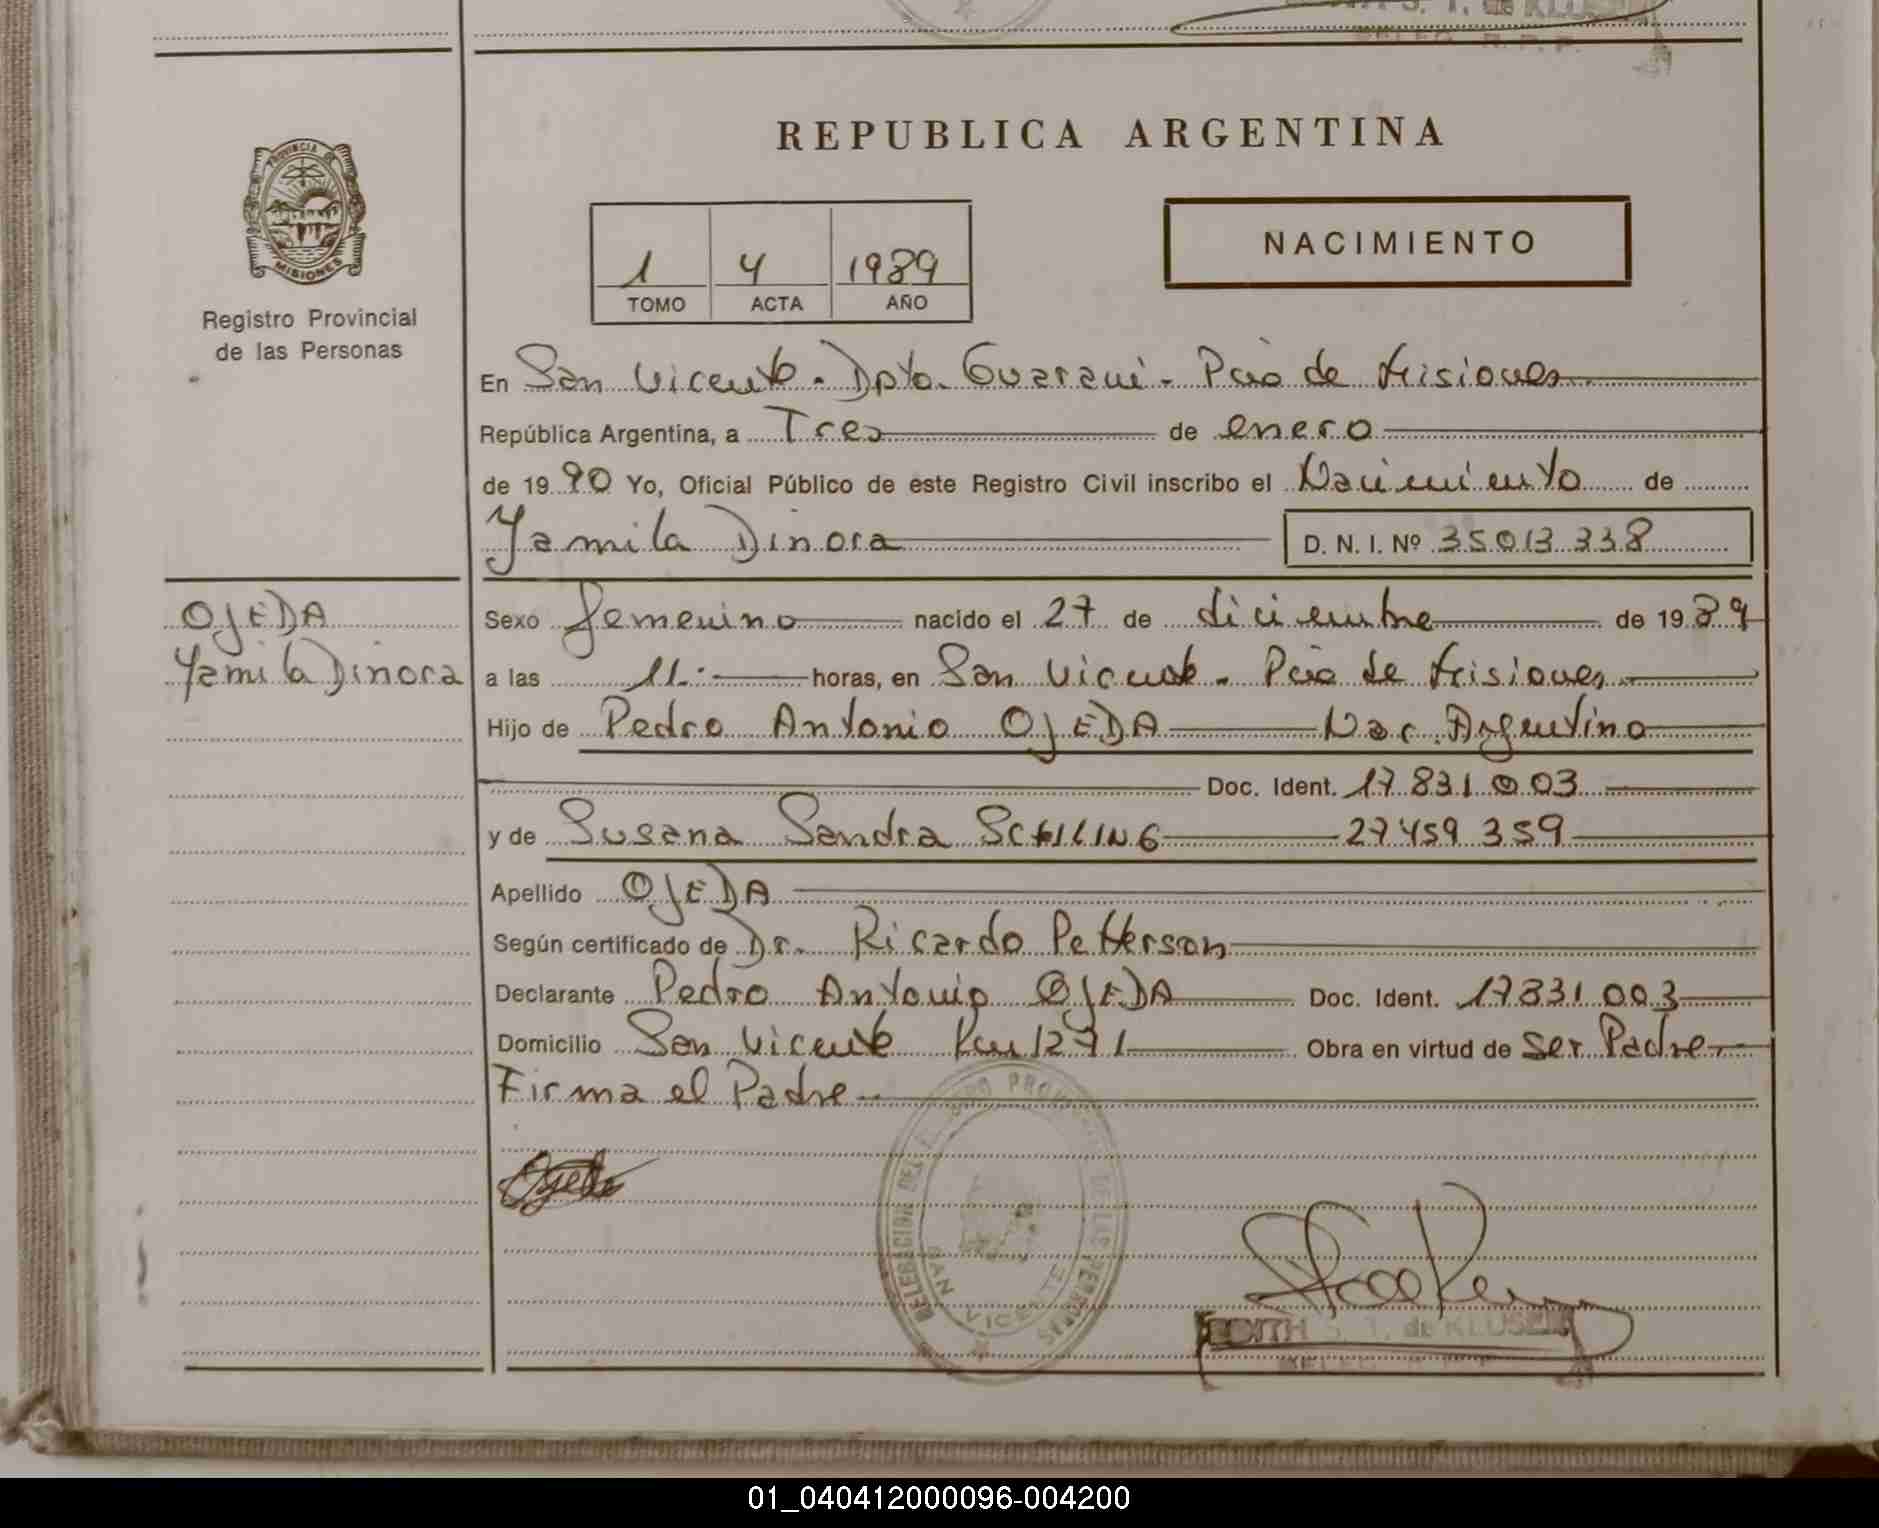 PROVINCIA DE
MISIONES
Registro Provincial
de las Personas
REPUBLICA ARGENTINA
1 4 1989
TOMO ACTA AÑO
NACIMIENTO
En San Vicente - Dpto. Guaraní - Pcia de Misiones
República Argentina, a Tres de enero
de 1990 Yo, Oficial Público de este Registro Civil inscribo el Nacimiento de
Yamila Dinora D. N. I. Nº 35013338
OJEDA
Yamila Dinora
Sexo femenino nacido el 27 de diciembre de 1989
a las 11.- horas, en San Vicente - Pcia de Misiones
Hijo de Pedro Antonio OJEDA Nac. Argentino
Doc. Ident. 17831003
y de Susana Sandra SCHILING 27459359
Apellido OJEDA
Según certificado de Dr. Ricardo Petterson
Declarante Pedro Antonio OJEDA Doc. Ident. 17831003
Domicilio San Vicente Km 1271 Obra en virtud de ser Padre
Firma el Padre
Ojeda
SAN VICENTE
EDITH S. T. de KLUSER
01_040412000096-004200